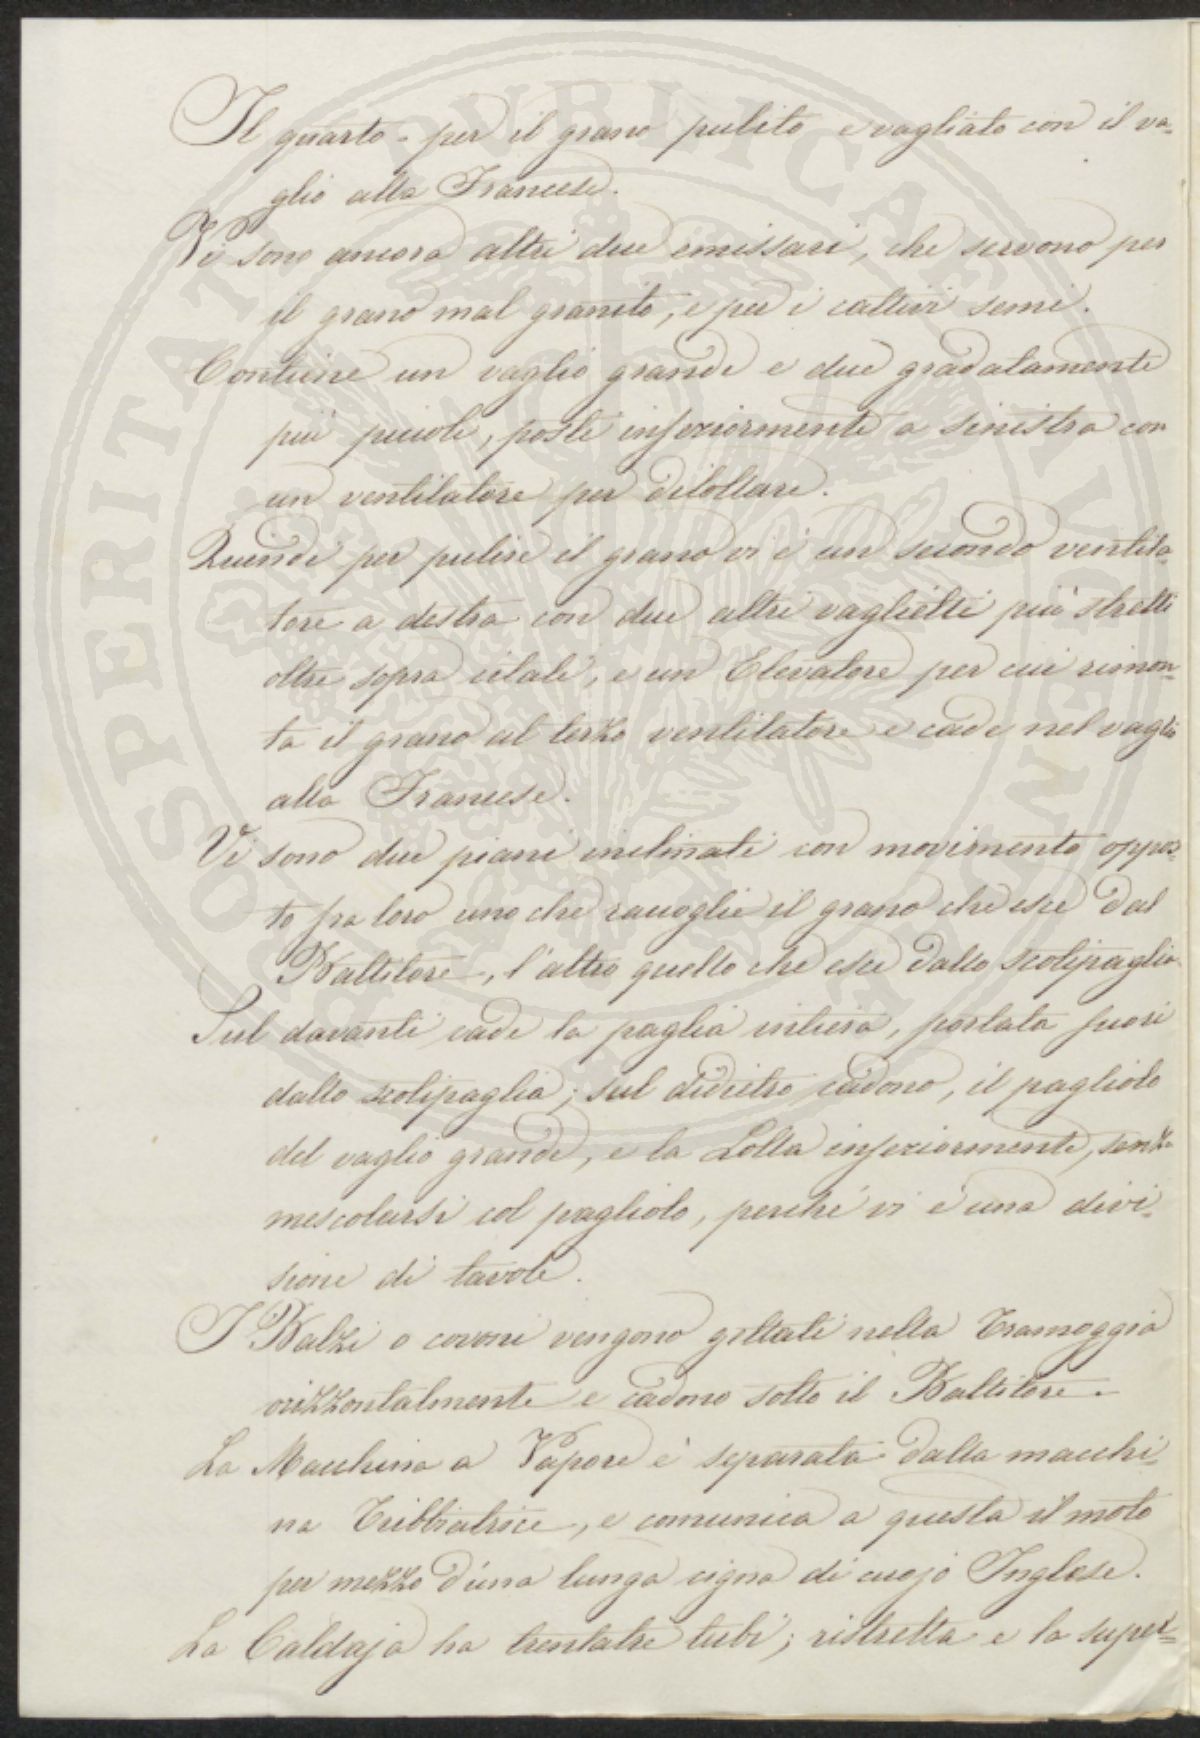 Il quarto - per il grano pulito e vagliato con il va=
glio alla Francese.
Vi sono ancora altri due emissari, che servono per
il grano mal granito, e per i cattivi semi.
Contiene un vaglio grande e due gradatamente
più piccoli, posti inferiormente a sinistra con
un ventilatore per dilollare.
Quindi per pulire il grano vi è un secondo ventila=
tore a destra con due altri vaglietti più stretti
oltre sopra citati, e un Elevatore per cui rimon=
ta il grano al terzo ventilatore e cade nel vaglio
alla Francese.
Vi sono due piani inclinati con movimento oppos=
to fra loro uno che raccoglie il grano che esce dal
Battitore, l'altro quello che esce dallo scotipaglia
Sul davanti cade la paglia intiera, portata fuori
dallo scotipaglia; sul didietro cadono, il pagliolo
del vaglio grande, e la Lolla inferiormente, senza
mescolarsi col pagliolo, perchè vi è una divi=
sione di tavole.
I Balzi o covoni vengono gettati nella Tramoggia
orizzontalmente e cadono sotto il Battitore.
La Macchina a Vapore è separata dalla macchi=
na Tribbiatrice, e comunica a questa il moto
per mezzo d'una lunga cigna di cuojo Inglese.
La Caldaja ha trentatre tubi; ristretta e la super=
PROSPERITATI PUBLICAE AUGENDAE